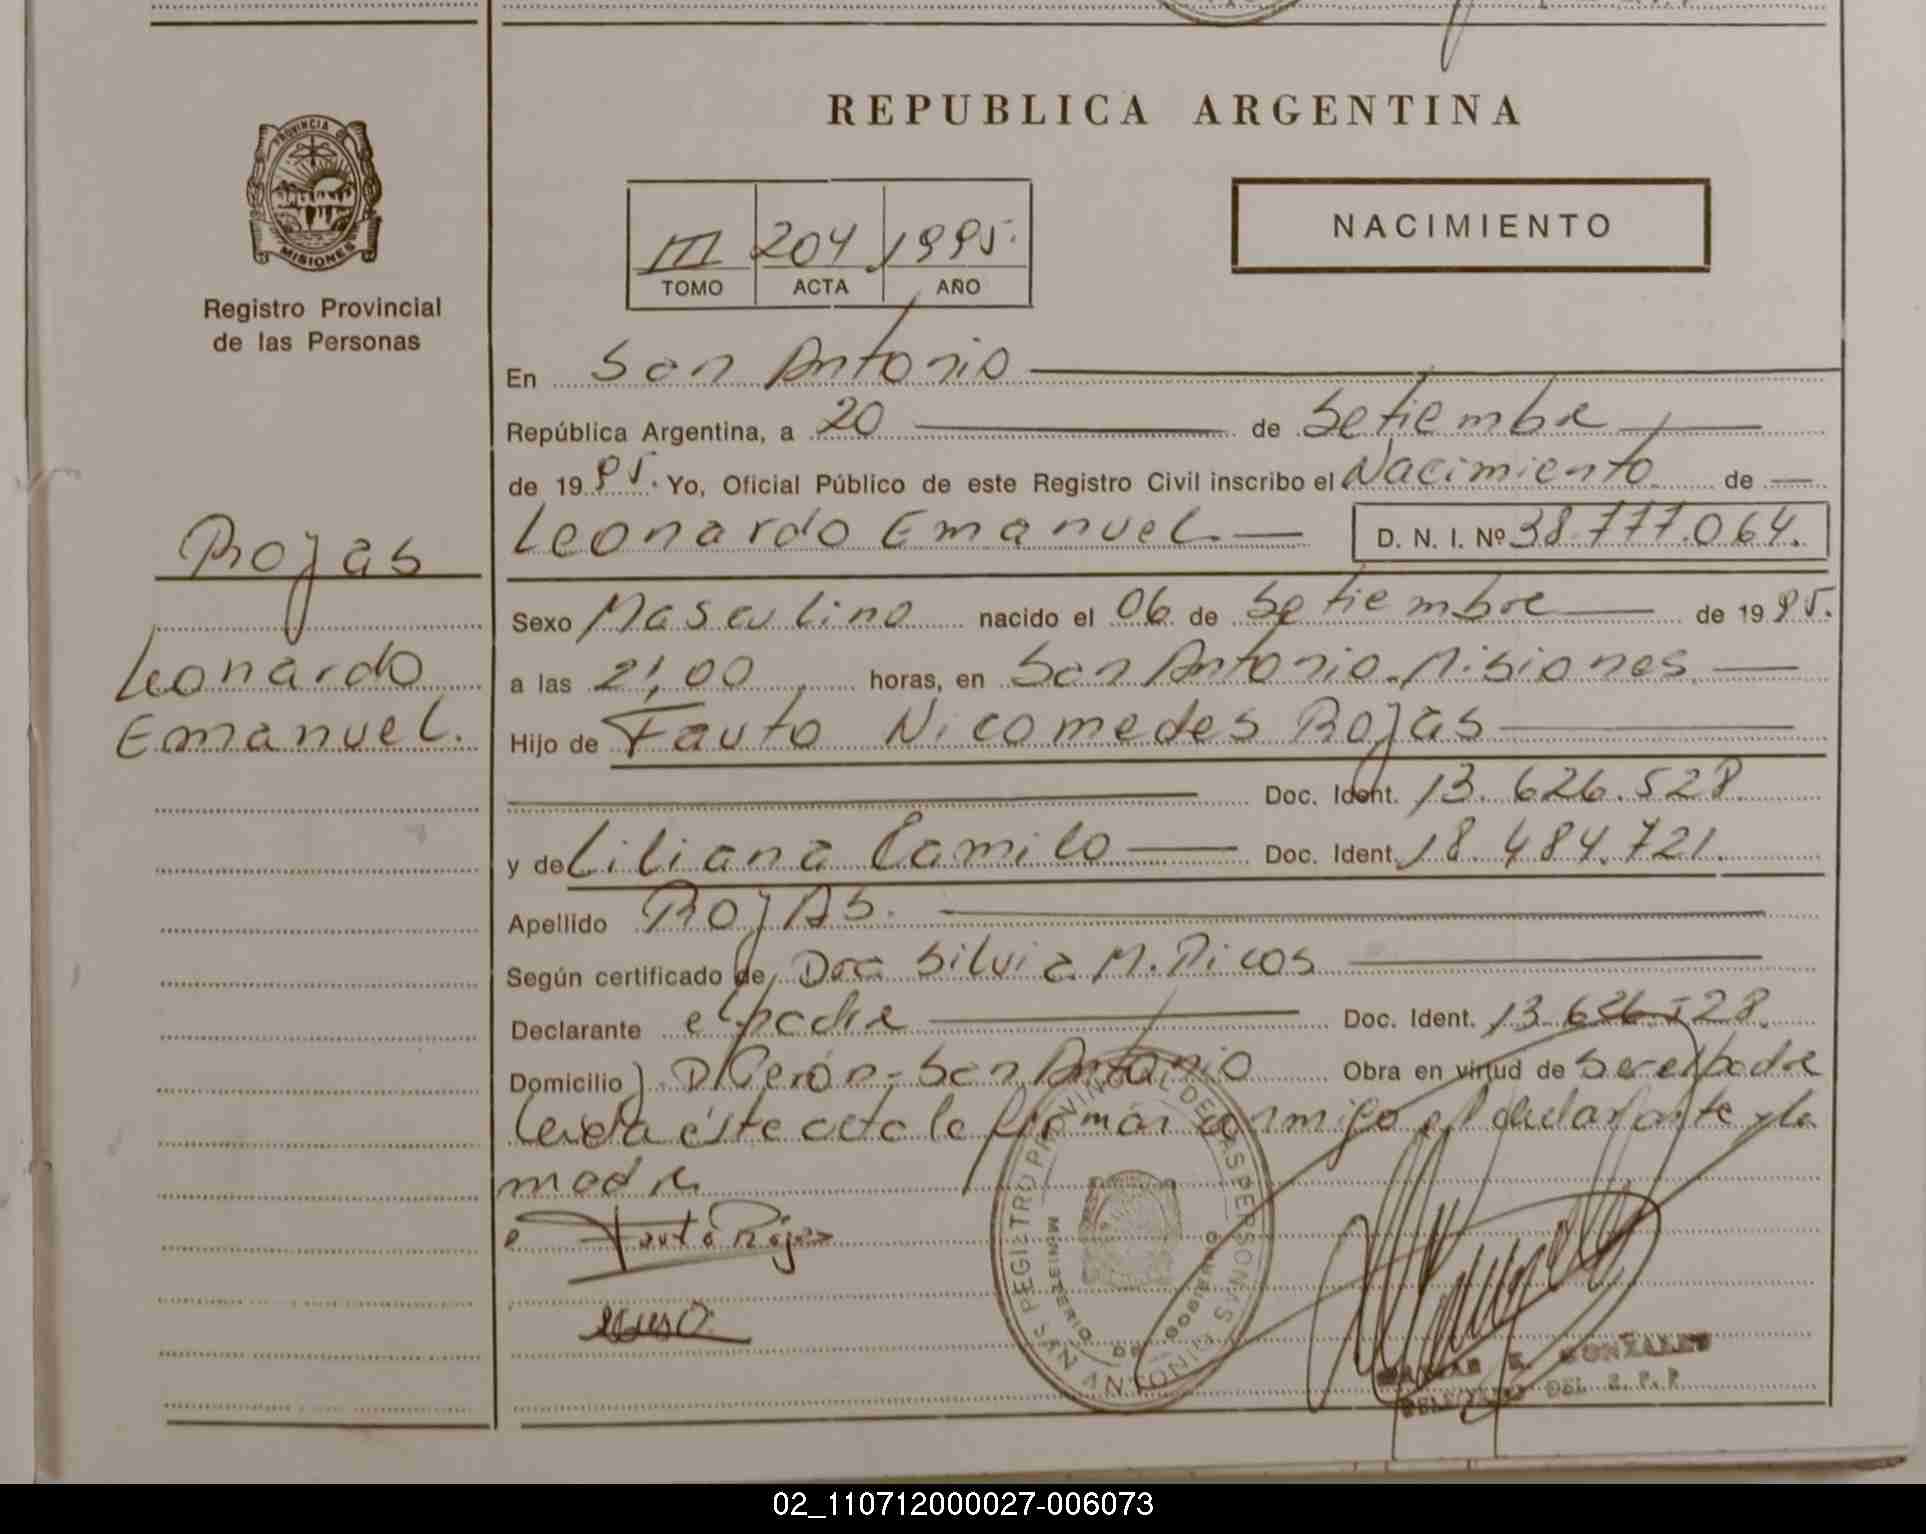 REPUBLICA ARGENTINA
PROVINCIA DE
MISIONES
Registro Provincial
de las Personas
III 204 1995.
TOMO ACTA AÑO
NACIMIENTO
En San Antonio
República Argentina, a 20 de Setiembre
de 1995. Yo, Oficial Público de este Registro Civil inscribo el Nacimiento de
Leonardo Emanuel D. N. I. Nº 38.777.064.
Rojas
Leonardo
Emanuel.
Sexo Masculino nacido el 06 de Setiembre de 1995.
a las 21,00 horas, en San Antonio. Misiones
Hijo de Fauto Nicomedes Rojas
Doc. Ident. 13.626.528
y de Liliana Camilo Doc. Ident. 18.484.721.
Apellido ROJAS.
Según certificado de Dra Silvia M. Picos
Declarante el padre Doc. Ident. 13.626.528.
Domicilio D/Perón - San Antonio Obra en virtud de ser el padre
Leida éste acta la firman conmigo el declarante y la
madre
Fauto Rojas
REGISTRO PROVINCIAL DE LAS PERSONAS
MINISTERIO DE GOBIERNO
SAN ANTONIO
E. GONZALES
DEL R. P. P
02_110712000027-006073